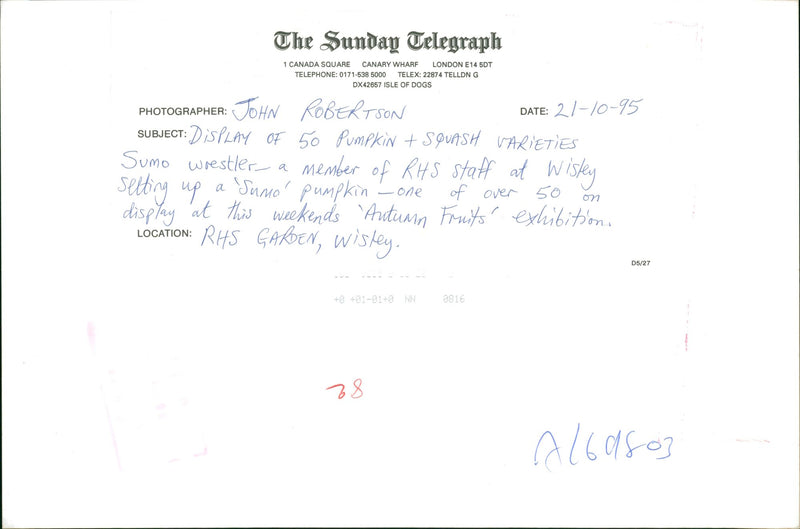 The Sunday Telegraph
1 CANADA SQUARE CANARY WHARF LONDON E14 5DT
TELEPHONE: 0171-538 5000 TELEX: 22874 TELLDN G
DX42657 ISLE OF DOGS
PHOTOGRAPHER: JOHN ROBERTSON DATE: 21-10-95
SUBJECT: DISPLAY OF 50 PUMPKIN + SQUASH VARIETIES
Sumo wrestler - a member of RHS staff at Wisley
setting up a 'Sumo' pumpkin - one of over 50 on
display at this weekends 'Autumn Fruits' exhibition.
LOCATION: RHS GARDEN, Wisley.
D5/27
+0 +01-01+0 NN 0816
38